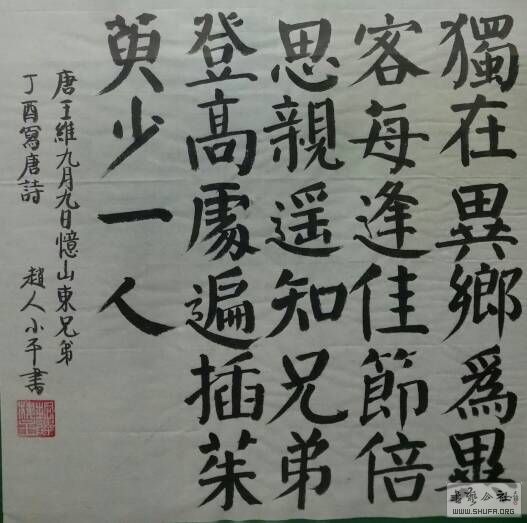 獨在異鄉為異
客每逢佳節倍
思親遥知兄弟
登高處遍插茱
萸少一人
唐王維九月九日憶山東兄弟
丁酉寫唐詩 趙人小平書
书艺公社
WWW.SHUFA.ORG